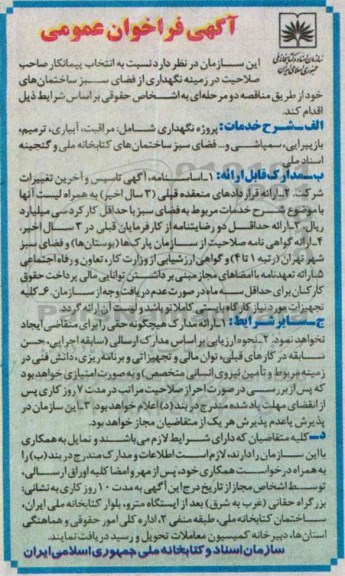 آگهی فراخوان عمومی
سازمان اسناد و کتابخانه ملی
جمهوری اسلامی ایران
این سازمان در نظر دارد نسبت به انتخاب پیمانکار صاحب
صلاحیت در زمینه نگهداری از فضای سبز ساختمان‌های
خود از طریق مناقصه دو مرحله‌ای به اشخاص حقوقی براساس شرایط ذیل
اقدام کند.
الف_شرح خدمات: پروژه نگهداری شامل: مراقبت، آبیاری، ترمیم،
بازپیرایی، سمپاشی و... فضای سبز ساختمان‌های کتابخانه ملی و گنجینه
اسناد ملی
ب_مدارک قابل ارائه: ۱_اساسنامه، آگهی تاسیس و آخرین تغییرات
شرکت. ۲_ارائه قراردادهای منعقده قبلی (۳ سال اخیر) به همراه لیست آنها
با موضوع شرح خدمات مربوط به فضای سبز با حداقل کارکرد سی میلیارد
ریال. ۳_ارائه حداقل دو رضایتنامه از کارفرمایان قبلی در ۳ سال اخیر.
۴_ارائه گواهی نامه صلاحیت از سازمان پارک‌ها (بوستان‌ها) و فضای سبز
شهر تهران (رتبه ۱ تا ۴) و گواهی ارزشیابی از وزارت کار، تعاون و رفاه اجتماعی
۵_ارائه تعهدنامه با امضاهای مجاز مبنی بر داشتن توانایی مالی پرداخت حقوق
کارکنان برای حداقل سه ماه در صورت عدم دریافت وجه از سازمان. ۶_کلیه
تجهیزات مورد نیاز کارگاه بایستی کاملا نو باشد و لیست آن ارائه گردد.
ج_سایر شرایط: ۱_ارائه مدارک هیچگونه حقی را برای متقاضی ایجاد
نخواهد نمود. ۲_نحوه ارزیابی براساس مدارک ارسالی (سابقه اجرایی، حسن
سابقه در کارهای قبلی، توان مالی و تجهیزاتی و برنامه ریزی، دانش فنی در
زمینه مربوط و تأمین نیروی انسانی متخصص) و به صورت امتیازی خواهد بود
که پس از بررسی در صورت احراز صلاحیت مراتب در مدت ۷ روز کاری پس
از انقضای مهلت یاد شده مندرج در بند (د) اعلام خواهد بود. ۳_این سازمان در
پذیرش یا عدم پذیرش هر یک از متقاضیان مجاز خواهد بود.
د_کلیه متقاضیان که دارای شرایط لازم می‌باشند و تمایل به همکاری
با این سازمان را دارند، لازم است اطلاعات و مدارک مندرج در بند (ب) را
به همراه درخواست همکاری خود، پس از مهر و امضا کلیه اوراق ارسالی،
توسط اشخاص مجاز از تاریخ درج این آگهی به مدت ۱۰ روز کاری به نشانی:
بزرگراه حقانی (غرب به شرق) بعد از ایستگاه مترو، بلوار کتابخانه ملی ایران،
ساختمان کتابخانه ملی، طبقه منفی ۲، اداره کلی امور حقوقی و هماهنگی
استان‌ها، دبیرخانه کمیسیون معاملات تحویل و رسید دریافت نمایند.
سازمان اسناد و کتابخانه ملی جمهوری اسلامی ایران